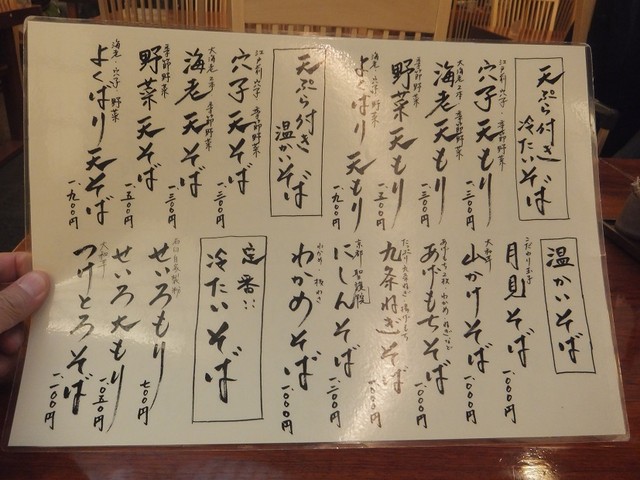 天ぷら付き
冷たいそば
江戸前穴子・季節野菜
穴子天もり
一、三〇〇円
大海老二本 季節野菜
海老天もり
一、五〇〇円
季節野菜
野菜天もり
海老 穴子 野菜
よくばり天もり
一、九〇〇円
天ぷら付き
温かいそば
江戸前穴子 季節野菜
穴子天そば
一、三〇〇円
大海老二本 季節野菜
海老天そば
一、五〇〇円
季節野菜
野菜天そば
海老 穴子 野菜
よくばり天そば
一、九〇〇円
温かいそば
こだわり玉子
月見そば
一、〇〇〇円
大和芋
山かけそば
一、一〇〇円
あげもちそば
一、一〇〇円
九条ねぎそば
にしんそば
一、三〇〇円
わかめそば
一、〇〇〇円
定番!!
冷たいそば
せいろもり
七〇〇円
せいろ大もり
一、〇五〇円
大和芋
つけとろそば
一、一〇〇円